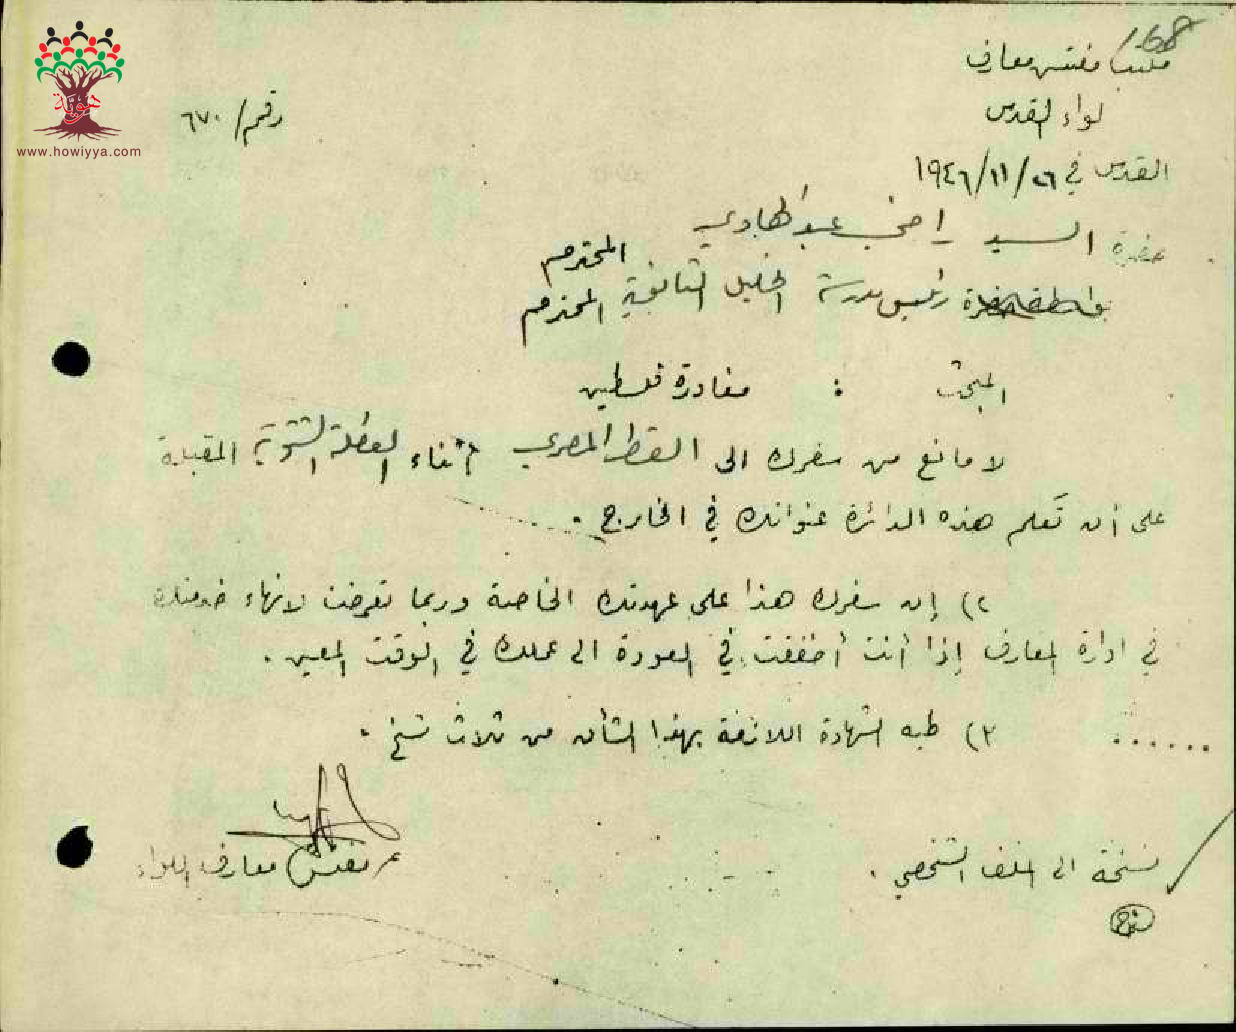 168
مكتب مفتش معارف
لواء القدس
رقم/ ٦٧٠
القدس في ٢٦/١١/١٩٤٦
حضرة السيد راضي عبد الهادي المحترم
بواسطة حضرة رئيس مدرسة الخليل الثانوية المحترم
المبحث : مغادرة فلسطين
لا مانع من سفرك الى القطر المصري أثناء العطلة الشتوية المقبلة
على أن تعلم هذه الدائرة عنوانك في الخارج .
٢) إن سفرك هذا على عهدتك الخاصة وربما تعرضت لانهاء خدمتك
في ادارة المعارف إذا أنت أخفقت في العودة الى عملك في الوقت المعين .
٣) طيه الشهادة اللازمة بهذا الشأن من ثلاث نسخ .
مفتش معارف اللواء
نسخة الى الملف الشخصي .
هوية
www.howiyya.com